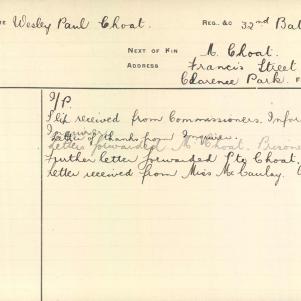 Wesley Paul Choat. REG. &C 32nd Bat
NEXT OF KIN M. Choat.
ADDRESS Francis Street
Clarence Park.
I/P.
Slip received from Commissioners. Infor
Letter of thanks from
Letters forwarded M. Choat. Prisone
Further letter forwarded Pte Choat,
Letter received from Miss McCaulay.